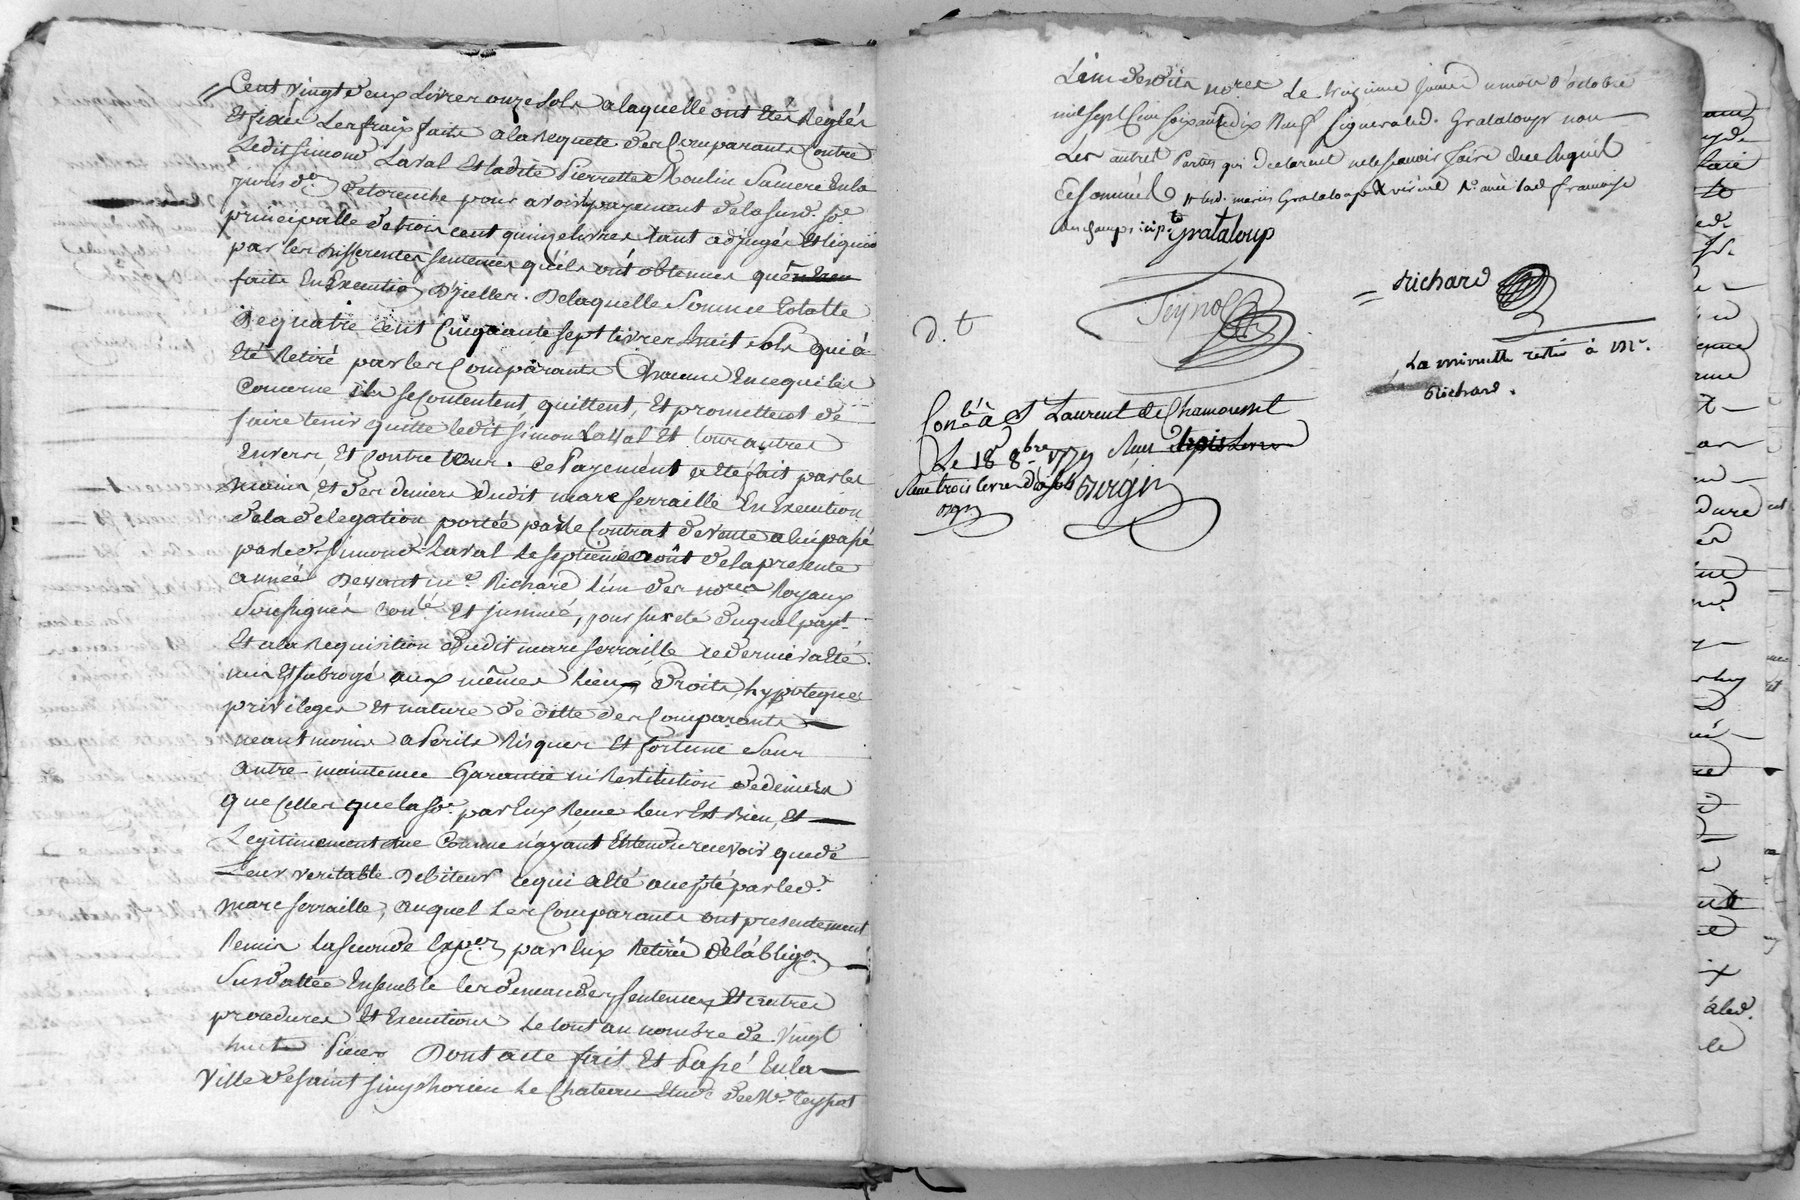 Cent vingt deux Livres onze sols a laquelle ont étés Reglés
Et fixés Les frais faits a la Requete des Comparants Contre
Ledit Simond Laval Et ladite Pierrette Moulin Sa mere En la
jurisd.on de torenche pour avoir payement de la susd. so.e
principalle de trois cent quinze livres tant adjugés Et liquidés
par les differentes sentences quéls ont obtenues que
faits En Execution D'jcelles. De laquelle Somme totalle
De quatre cent Cinquante sept livres huit sols qui á
Eté Retiré par les Comparants Chacuns En ce qui les
Concerne ils se Contentent quittent, Et promettent de
faire tenir quitte ledit Simon Laval Et tous autres
Envers Et Contre tous. Ce Payement a eté fait par les
mains, Et des deniers dudit marc ferraille En Execution
de la delegation portée par le Contrat de vente a lui passé
par led. Simond Laval Le septieme août de la presente
année Devant m.e Richard l'un des no.res Royaux
Soussignés con.lé Et jnsinué, pour sureté duquel pay.t
Et a la Requisition dudit marc ferraille ce dernier a eté
mis Et subrogé aux mêmes lieux Droits, hypoteques
privileges Et nature de dette des Comparants
neantmoins a Perils Risques Et fortune sans
autre maintenue Garantie ni Restitution de deniers
que Celles que la so.e par Eux Recue leur Est Bien, Et
Legitimement due Comme n'ayant Entendu recevoir que de
Leur veritable Debiteur ce qui a eté accepté par led.
marc ferraille, auquel Les Comparants ont presentement
Remis La seconde Exp.on par Eux Retirée de l'óblig.on
Susdattée Ensemble les demandes, sentences Et autres
procedures Et Executions Le tout au nombre de vingt
huit Pieces Dont acte fait Et Passé En la
Ville de saint simphorien Le Chateau Etude de M.e teynot
L'un desdits no.res Le treizieme jour du mois d'octobre
mil sept Cent soixante dix Neuf Signera led. Grataloup non
Les autres Parties qui declarent ne le sçavoir faire de ce Enquis
Et sommés
Grataloup
Richard
D. t
La minutte restée à M.e
Richard.
Con.lé à S.t Laurent de Chamousset
Le 18 8.bre 1779 Reçu trois Livres
Reçu trois livres dix sols